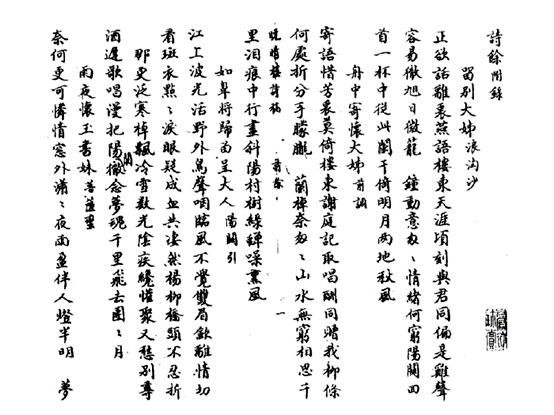 詩餘附錄
留別大姊浪淘沙
正欲話離衷燕語樓東天涯頃刻與君同偏是雞聲
容易徹旭日微籠 鐘動意匆〻情緒何窮陽關四
首一杯中從此闌干倚明月兩地秋風
舟中寄懷大姊 前調
寄語惜芳衷莫倚樓東謝庭記取唱酬同贈我柳條
何處折分手朦朧 蘭棹奈匆〻山水無窮相思千
曉晴樓詩稿 詩餘 一
里淚痕中行盡斜陽村樹綠蟬噪薰風
如皋將歸留呈大人 陽關引
江上波光活野外鳥聲咽臨風不覺雙眉斂離情切
看斑衣點〻淚眼疑成血共淒然楊柳橋頭不忍折
那更泛寒棹飄冷雪數光陰疾纔懽聚又愁別尊
酒遲歌唱漫把陽關徹念夢魂千里飛去團〻月
雨夜懷玉書妹 菩薩蠻
奈何更可憐情窗外瀟〻夜雨盈伴人燈半明 夢